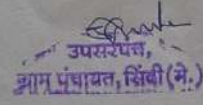 उपसरपंच,
ग्राम पंचायत, सिंबी (मे.)